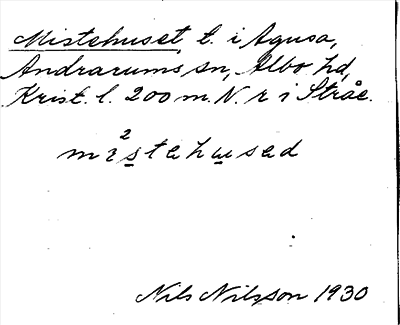 Mistehuset, t. i Agusa,
Andrarums sn, Albo hd,
Krist. l. 200 m. N. r i Stråe.
mi²stehused
Nils Nilsson 1930